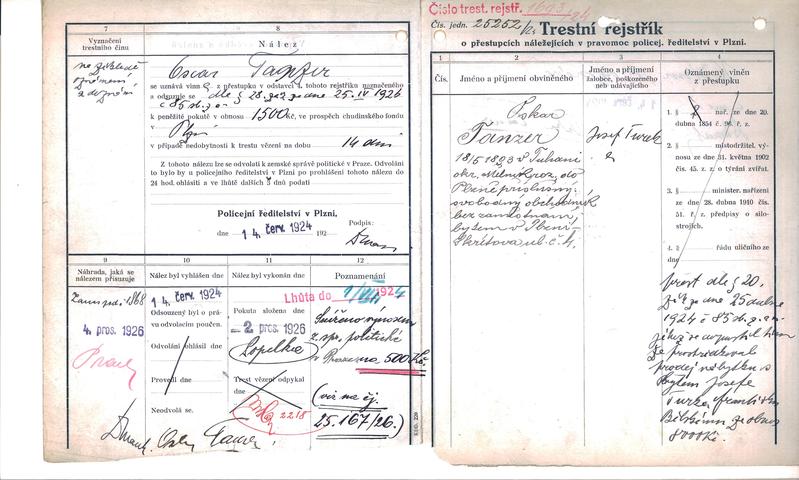 7
8
Vyznačení
trestního činu
Nález
na základě
oznámení
a doznání
Oscar Tänzer
se uznává vinn
z přestupku v odstavci 4. tohoto rejstříku naznačeného
a odsuzuje se dle § 28 zaz ze dne 25. IV 1924
č 85 sb. z. a n.
k peněžité pokutě v obnosu 1500 Kč, ve prospěch chudinského fondu
v Plzni
v případě nedobytnosti k trestu vězení na dobu 14 dní
Z tohoto nálezu lze se odvolati k zemské správě politické v Praze. Odvolání
to bylo by u policejního ředitelství v Plzni po prohlášení tohoto nálezu do
24 hod. ohlásiti a ve lhůtě dalších 3 dnů podati
Policejní ředitelství v Plzni,
Podpis:
dne 14. červ. 1924 192
9
10
11
12
Náhrada, jaká se
nálezem přisuzuje
Nález byl vyhlášen dne
Nález byl vykonán dne
Poznamenání
14. červ. 1924
Lhůta do
1924
4. pros. 1926
Odsouzený byl o prá-
vu odvolacím poučen.
Pokuta složena dne
- 2 pros. 1926
Sníženo výnosem
z. sp. politické
v Praze na 500 Kč.
Odvolání ohlásil dne
Provedl dne
Trest vězení odpykal
dne
2218
(viz na čj.
25.167/26.)
Neodvolá se.
Číslo trest. rejstř. 1693/24
Čís. jedn. 25252/
Trestní rejstřík
o přestupcích náležejících v pravomoc policej. ředitelství v Plzni.
1
2
3
4
Čís.
Jméno a příjmení obviněného
Jméno a příjmení
žalobce, poškozeného
neb udávajícího
Oznámený viněn
z přestupku
Oskar
Tänzer
18/5 1893 v Tuhani
okr. Mělník, roz. do
Plzně příslušný
svobodný obchodník
bez zaměstnání,
bytem v Plzni
Škrétova ul. č. 4.
Josef Turek
1. § nař. ze dne 20.
dubna 1854 č. 96. ř. z.
2. místodržitel. vý-
nosu ze dne 31. května 1902
čís. 45. z. z. o týrání zvířat.
3. § minister. nařízení
ze dne 28. dubna 1910 čís.
81. ř. z. předpisy o silo-
strojích.
4. § řádu uličního ze
dne
prest dle § 20.
zák. ze dne 25 dubna
1924 č 85 sb. z. a n.
jehož se dopustil tím
že prostředkoval
prodej nábytku s
bytem Josefa
Turka Františku
Bělskému za obnos
8000 Kč.